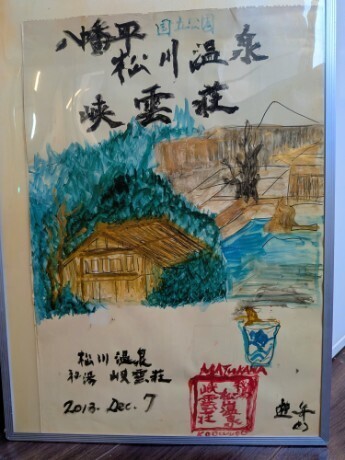 八幡平 国立公園
松川温泉
峡雲荘
松川温泉
秘湯 峡雲荘
2013. Dec. 7
MATUKAWA
松川温泉
峡雲荘